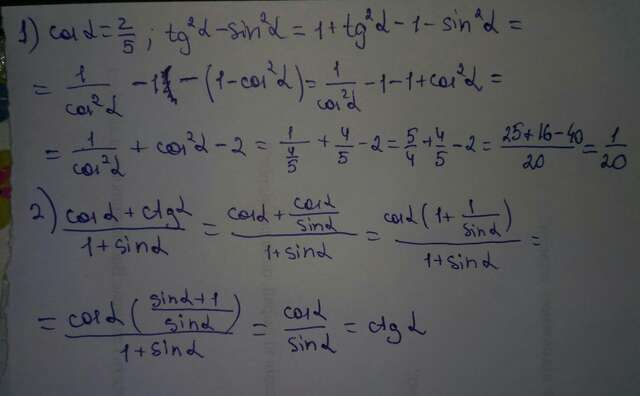 1) cosα = 2/5 ; tg²α - sin²α = 1 + tg²α - 1 - sin²α =
= 1/cos²α - 1 - (1 - cos²α) = 1/cos²α - 1 - 1 + cos²α =
= 1/cos²α + cos²α - 2 = 1/(4/5) + 4/5 - 2 = 5/4 + 4/5 - 2 = (25 + 16 - 40)/20 = 1/20
2) (cosα + ctgα)/(1 + sinα) = (cosα + cosα/sinα)/(1 + sinα) = (cosα(1 + 1/sinα))/(1 + sinα) =
= (cosα((sinα + 1)/sinα))/(1 + sinα) = cosα/sinα = ctgα